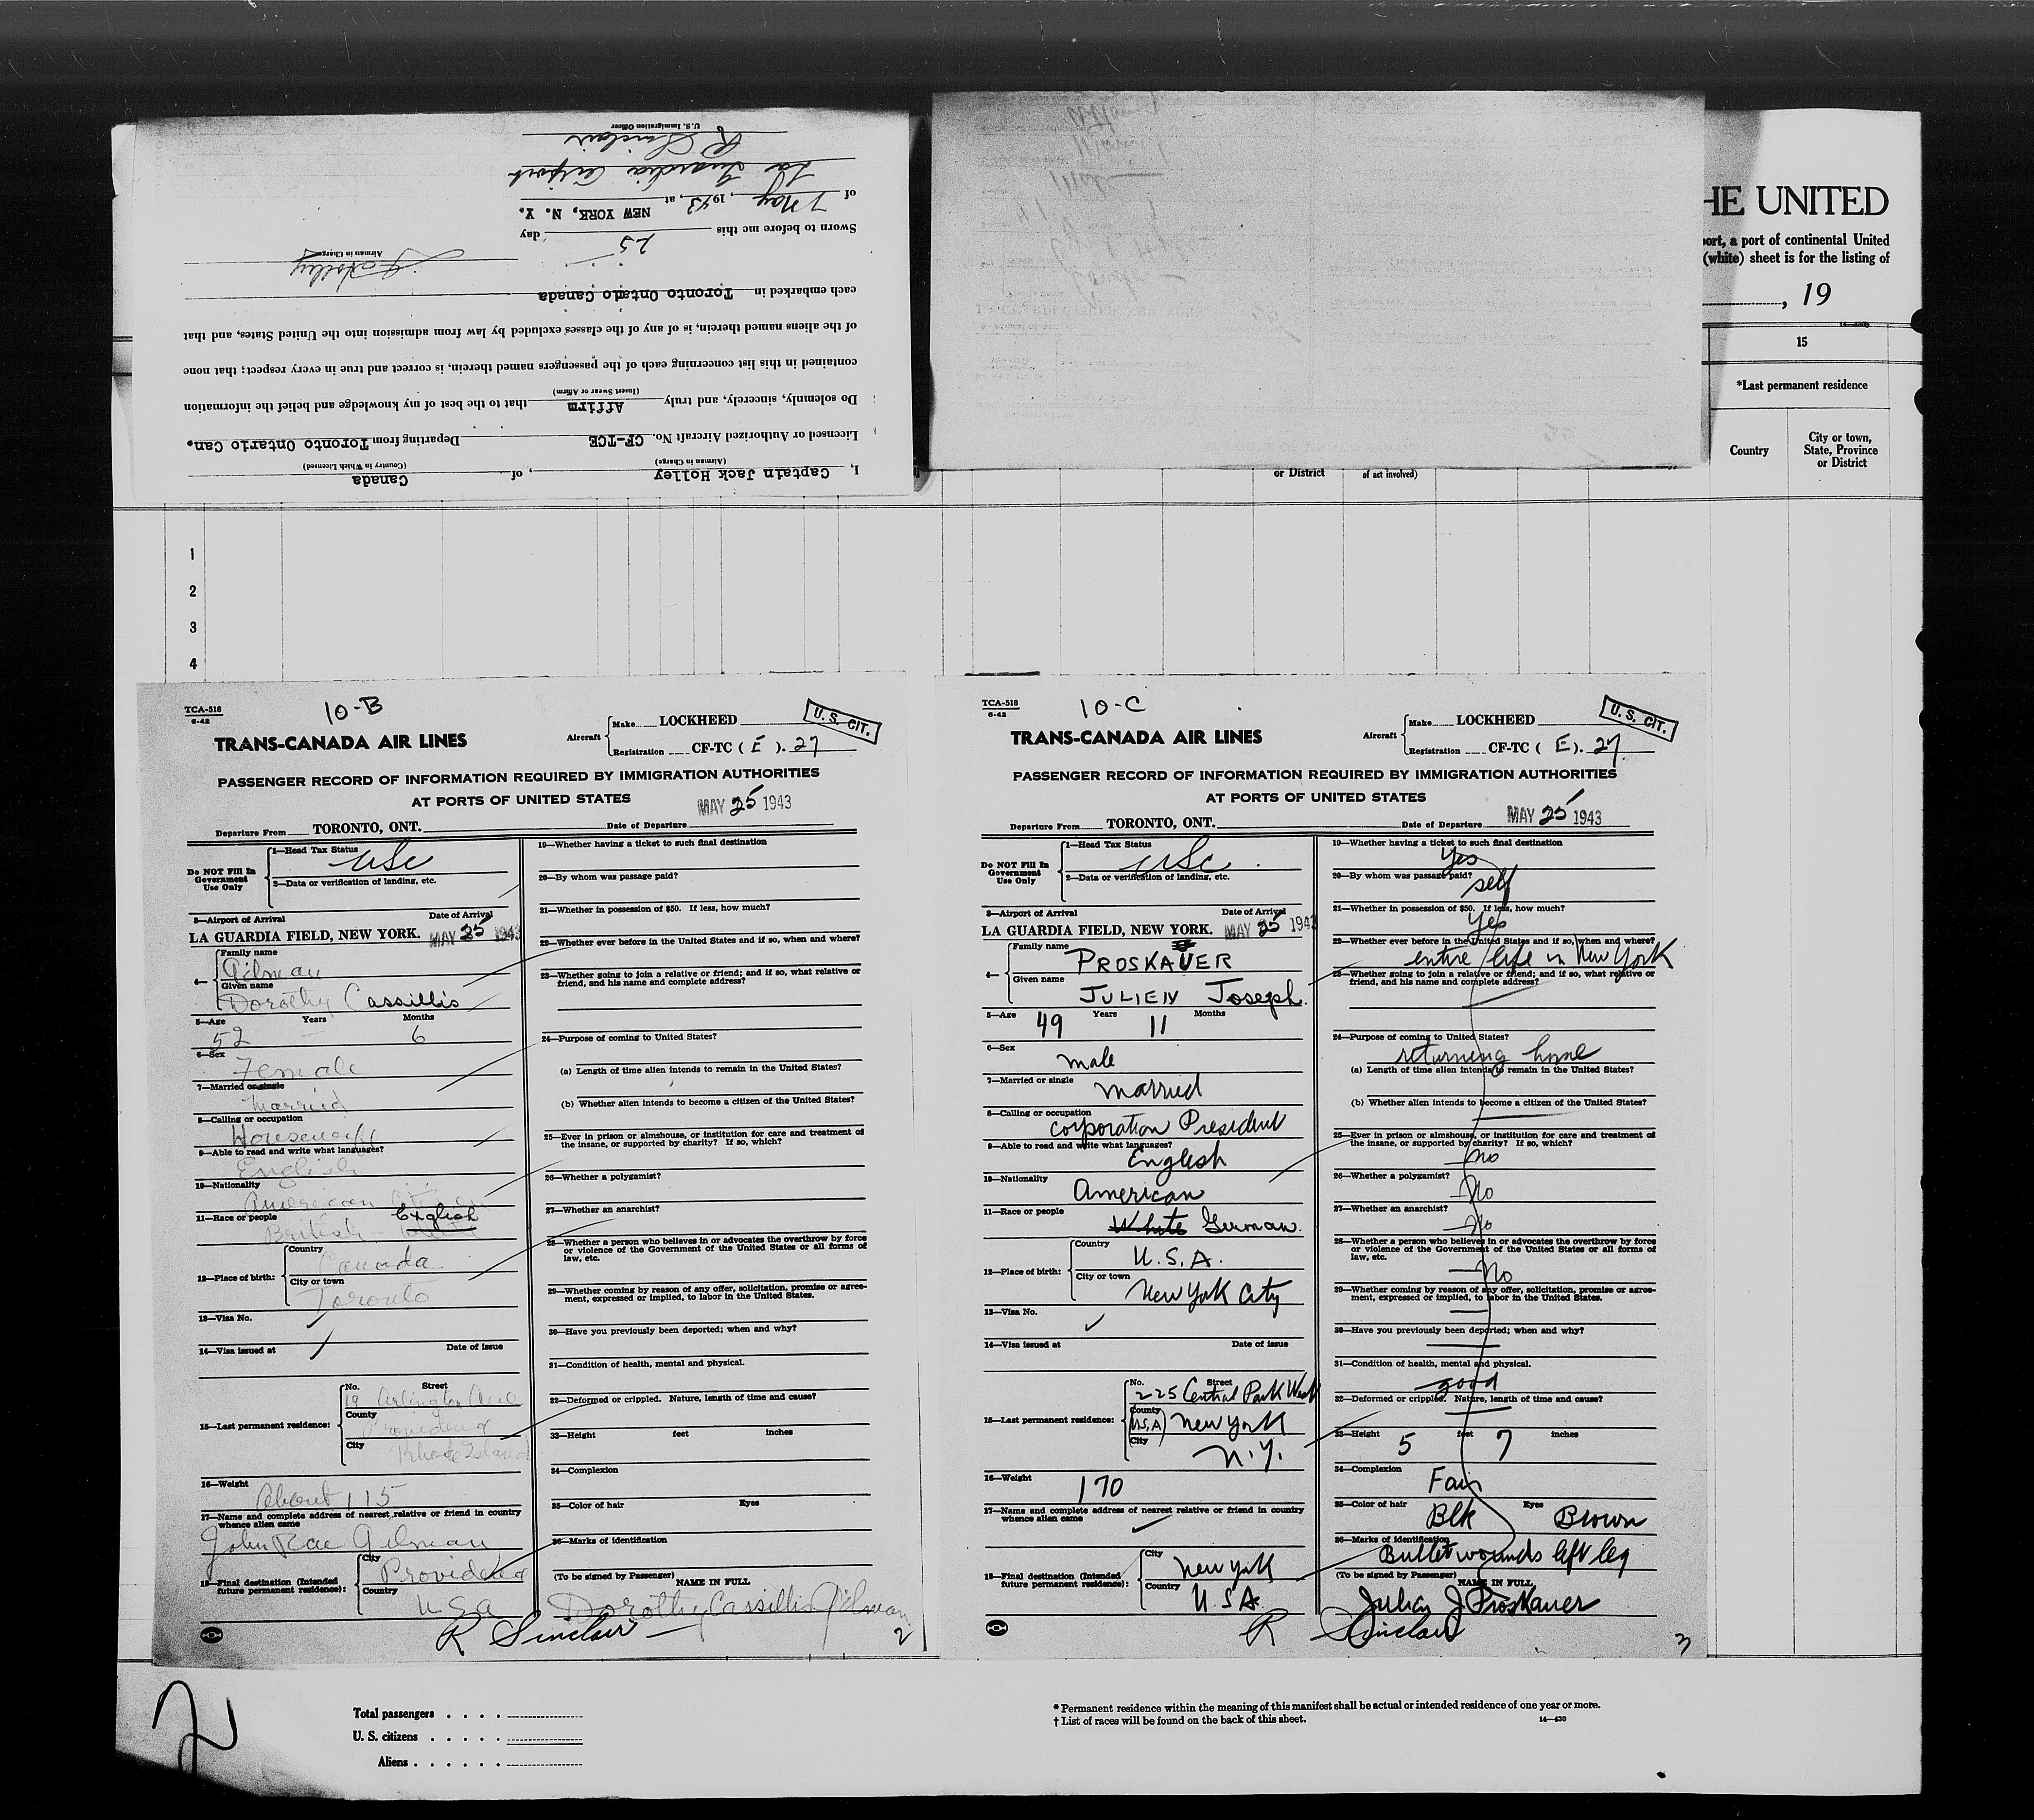 U.S. Immigration Officer
R Sinclair
La Guardia Airport
of May, 1943, at NEW YORK, N. Y.
Sworn to before me this 25 day
Airman in Charge
J Holley
each embarked in Toronto Ontario Canada
of the aliens named therein, is of any of the classes excluded by law from admission into the United States, and that
contained in this list concerning each of the passengers named therein, is correct and true in every respect; that none
(Insert Swear or Affirm)
Do solemnly, sincerely, and truly Affirm that to the best of my knowledge and belief the information
Licensed or Authorized Aircraft No. CF-TCE Departing from Toronto Ontario Can.
(Airman in Charge) (Country in Which Licensed)
I, Captain Jack Holley, of Canada
HE UNITED
port, a port of continental United
(white) sheet is for the listing of
, 19
15
*Last permanent residence
Country
City or town,
State, Province
or District
or District
of act involved)
1
2
3
4
TCA-518
6-42
10-B
U. S. CIT.
Aircraft
Make LOCKHEED
Registration CF-TC ( E ). 27
TRANS-CANADA AIR LINES
PASSENGER RECORD OF INFORMATION REQUIRED BY IMMIGRATION AUTHORITIES
AT PORTS OF UNITED STATES
MAY 25 1943
Departure From TORONTO, ONT. Date of Departure
Do NOT Fill In
Government
Use Only
1—Head Tax Status
USC
2—Data or verification of landing, etc.
3—Airport of Arrival Date of Arrival
LA GUARDIA FIELD, NEW YORK. MAY 25 1943
4—
Family name
Gilman
Given name
Dorothy Cassillis
5—Age Years Months
52 6
6—Sex
Female
7—Married or single
Married
8—Calling or occupation
Housewife
9—Able to read and write what languages?
English
10—Nationality
American Citizen
11—Race or people English
British
12—Place of birth:
Country
Canada
City or town
Toronto
13—Visa No.
14—Visa issued at Date of issue
15—Last permanent residence:
No. Street
19 Arlington Ave
County
Providence
City
Rhode Island
16—Weight
About 115
17—Name and complete address of nearest relative or friend in country
whence alien came
John Rae Gilman
18—Final destination (Intended
future permanent residence):
City
Providence
Country
U S a
R Sinclair
19—Whether having a ticket to such final destination
20—By whom was passage paid?
21—Whether in possession of $50. If less, how much?
22—Whether ever before in the United States and if so, when and where?
23—Whether going to join a relative or friend; and if so, what relative or
friend, and his name and complete address?
24—Purpose of coming to United States?
(a) Length of time alien intends to remain in the United States?
(b) Whether alien intends to become a citizen of the United States?
25—Ever in prison or almshouse, or institution for care and treatment of
the insane, or supported by charity? If so, which?
26—Whether a polygamist?
27—Whether an anarchist?
28—Whether a person who believes in or advocates the overthrow by force
or violence of the Government of the United States or all forms of
law, etc.
29—Whether coming by reason of any offer, solicitation, promise or agree-
ment, expressed or implied, to labor in the United States.
30—Have you previously been deported; when and why?
31—Condition of health, mental and physical.
32—Deformed or crippled. Nature, length of time and cause?
33—Height feet inches
34—Complexion
35—Color of hair Eyes
36—Marks of identification
(To be signed by Passenger)
NAME IN FULL
Dorothy Cassillis Gilman
2
TCA-518
6-42
10-C
U. S. CIT.
Aircraft
Make LOCKHEED
Registration CF-TC ( E ). 27
TRANS-CANADA AIR LINES
PASSENGER RECORD OF INFORMATION REQUIRED BY IMMIGRATION AUTHORITIES
AT PORTS OF UNITED STATES
MAY 25 1943
Departure From TORONTO, ONT. Date of Departure
Do NOT Fill In
Government
Use Only
1—Head Tax Status
USC
2—Data or verification of landing, etc.
3—Airport of Arrival Date of Arrival
LA GUARDIA FIELD, NEW YORK. MAY 25 1943
4—
Family name
PROSKAUER
Given name
JULIEN Joseph
5—Age 49 Years 11 Months
6—Sex
male
7—Married or single
Married
8—Calling or occupation
corporation President
9—Able to read and write what languages?
English
10—Nationality
American
11—Race or people
White German
12—Place of birth:
Country
U.S.A.
City or town
New York City
13—Visa No.
14—Visa issued at Date of issue
15—Last permanent residence:
No. Street
225 Central Park West
County
(U.S.A) New York
City
N.Y.
16—Weight
170
17—Name and complete address of nearest relative or friend in country
whence alien came
18—Final destination (Intended
future permanent residence):
City
New York
Country
U.S.A.
R Sinclair
19—Whether having a ticket to such final destination
Yes
20—By whom was passage paid?
self
21—Whether in possession of $50. If less, how much?
Yes
22—Whether ever before in the United States and if so, when and where?
entire life in New York
23—Whether going to join a relative or friend; and if so, what relative or
friend, and his name and complete address?
24—Purpose of coming to United States?
returning home
(a) Length of time alien intends to remain in the United States?
(b) Whether alien intends to become a citizen of the United States?
25—Ever in prison or almshouse, or institution for care and treatment of
the insane, or supported by charity? If so, which?
no
26—Whether a polygamist?
No
27—Whether an anarchist?
No
28—Whether a person who believes in or advocates the overthrow by force
or violence of the Government of the United States or all forms of
law, etc.
No
29—Whether coming by reason of any offer, solicitation, promise or agree-
ment, expressed or implied, to labor in the United States.
30—Have you previously been deported; when and why?
31—Condition of health, mental and physical.
good
32—Deformed or crippled. Nature, length of time and cause?
33—Height 5 feet 7 inches
34—Complexion
Fair
35—Color of hair Eyes
Blk Brown
36—Marks of identification
Bullet wounds left leg
(To be signed by Passenger)
NAME IN FULL
Julien J Proskauer
3
2
Total passengers
U. S. citizens
Aliens
* Permanent residence within the meaning of this manifest shall be actual or intended residence of one year or more.
† List of races will be found on the back of this sheet.
14—430